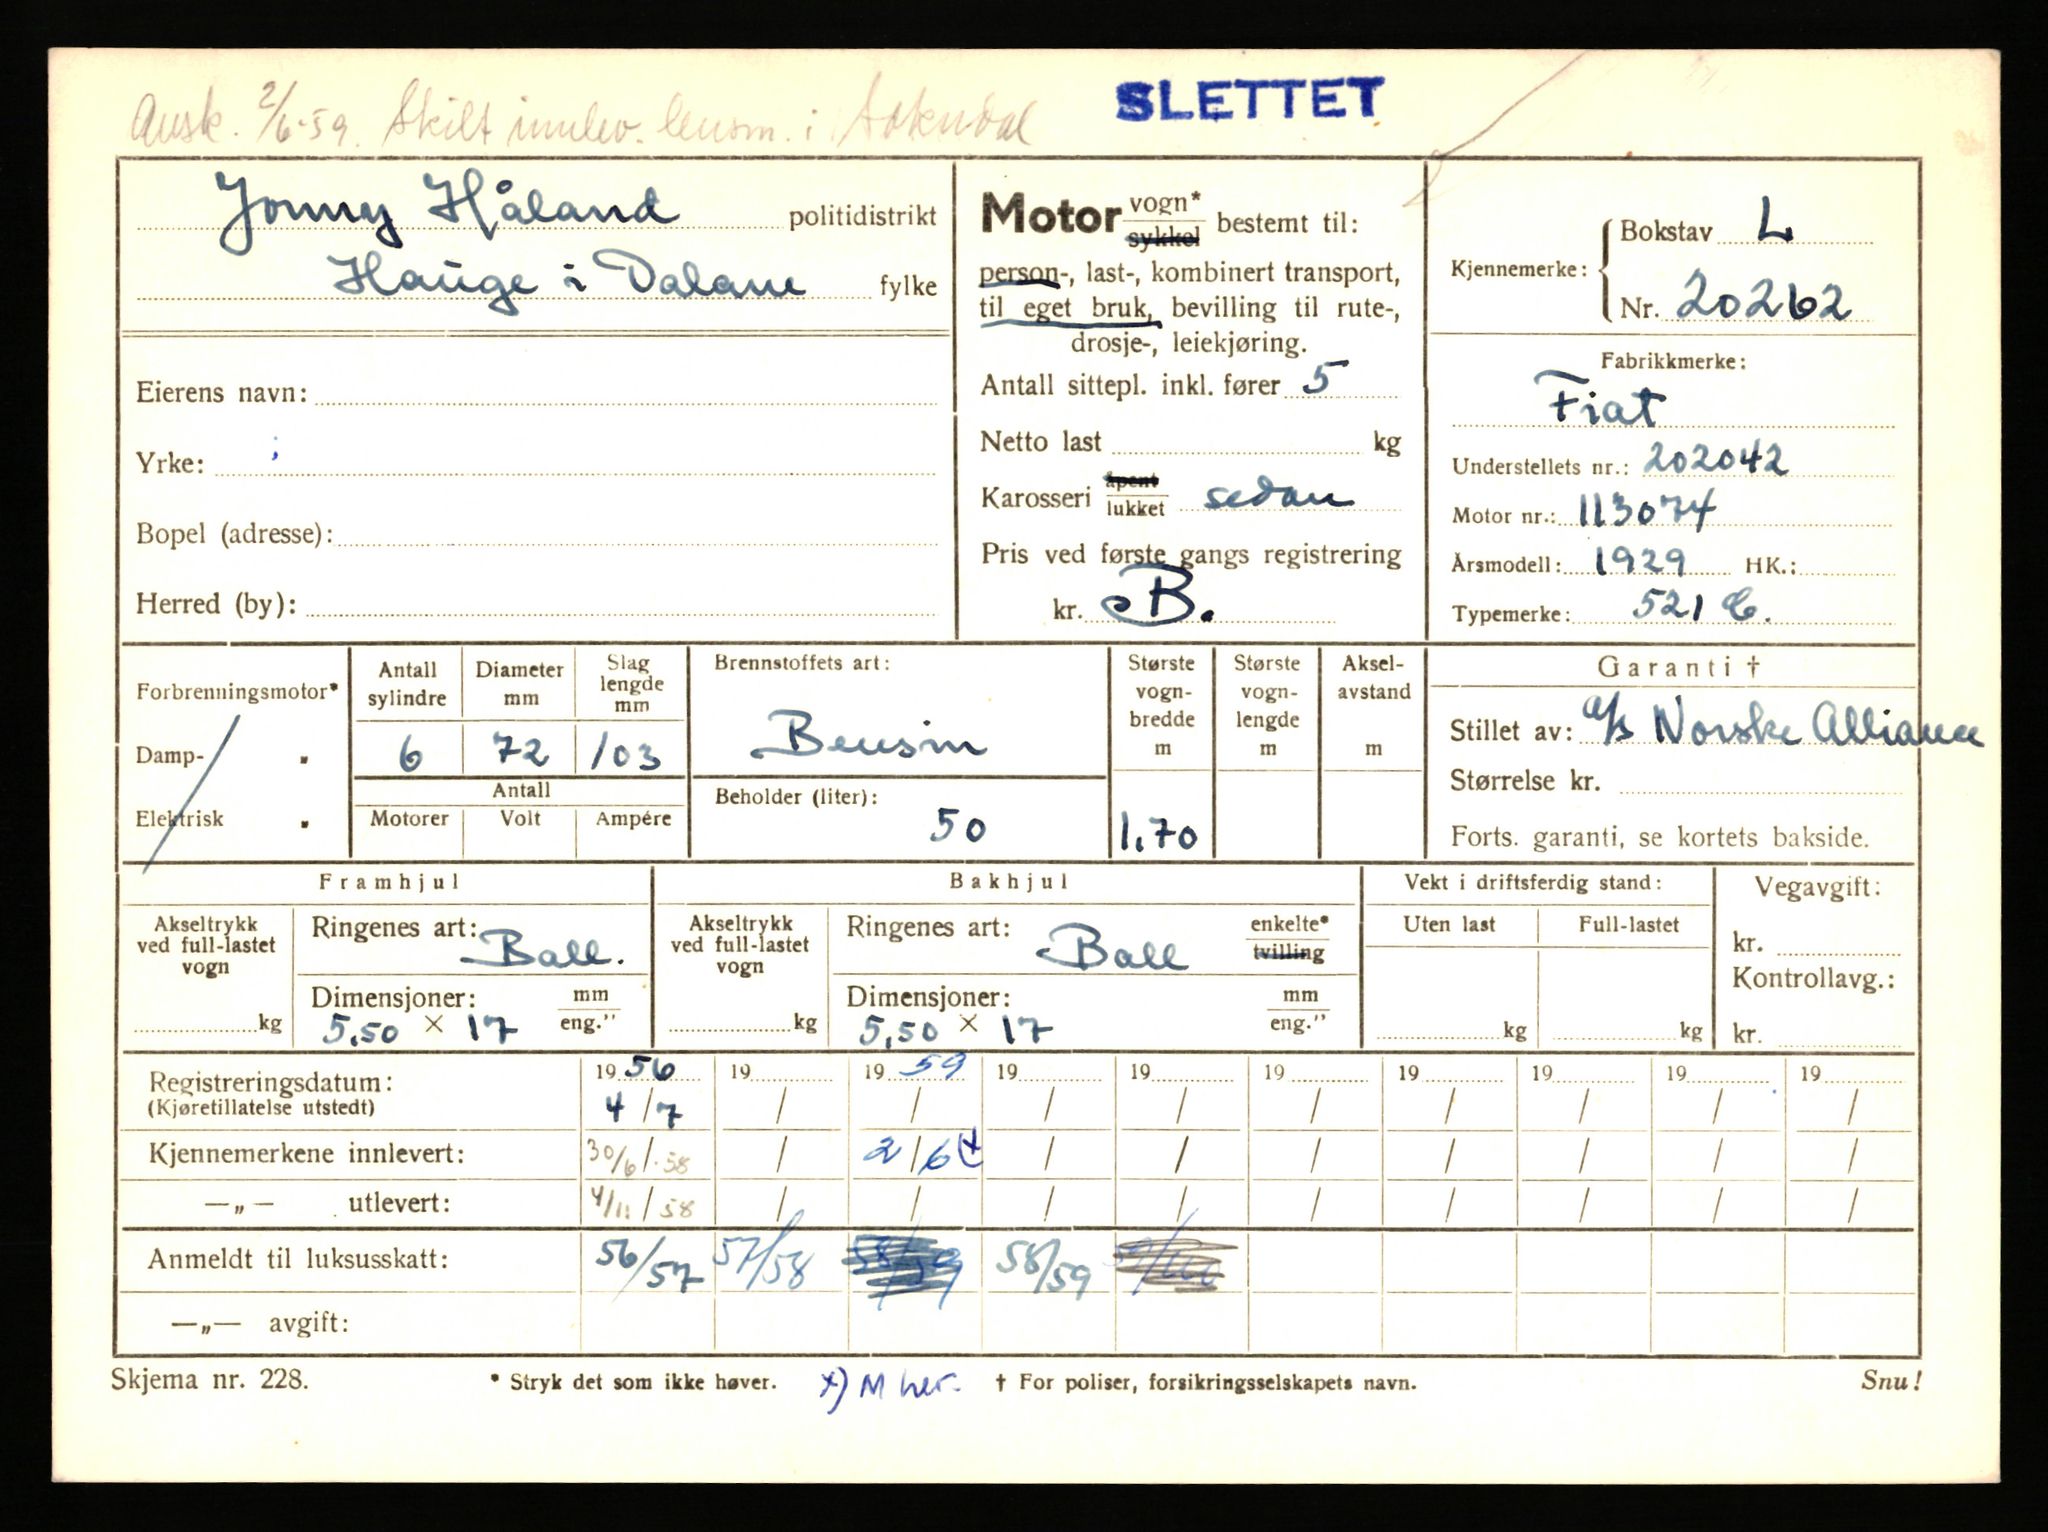 Avsk. 2/6-59. Skilt innlev. lensm. i Sokndal
SLETTET
Jonny Håland politidistrikt
Hauge i Dalane fylke
Eierens navn:
Yrke:
Bopel (adresse):
Herred (by):
Motor vogn* sykkel bestemt til:
person-, last-, kombinert transport,
til eget bruk, bevilling til rute-,
drosje-, leiekjøring.
Antall sittepl. inkl. fører 5
Netto last kg
Karosseri åpent lukket sedan
Pris ved første gangs registrering
kr. B.
Kjennemerke: Bokstav L
Nr. 20262
Fabrikkmerke:
Fiat
Understellets nr.: 202042
Motor nr.: 113074
Årsmodell: 1929 HK.:
Typemerke: 521 C.
Forbrenningsmotor*
Damp- "
Elektrisk "
Antall sylindre Diameter mm Slag lengde mm
6 72 103
Antall
Motorer Volt Ampére
Brennstoffets art:
Bensin
Beholder (liter):
50
Største vogn-bredde m Største vogn-lengde m Aksel-avstand m
1,70
Garanti †
Stillet av: a/s Norske Alliance
Størrelse kr.
Forts. garanti, se kortets bakside.
Framhjul Bakhjul Vekt i driftsferdig stand: Vegavgift:
Akseltrykk ved full-lastet vogn kg
Ringenes art: Ball.
Dimensjoner: mm eng."
5,50 × 17
Akseltrykk ved full-lastet vogn kg
Ringenes art: Ball enkelte* tvilling
Dimensjoner: mm eng."
5,50 × 17
Uten last Full-lastet
kg kg
kr.
Kontrollavg.:
kr.
Registreringsdatum: 19 56 19 19 59 19 19 19 19 19 19 19
(Kjøretillatelse utstedt) 4/7 / / / / / / / / /
Kjennemerkene innlevert: 30/6/58 / 2/6 x) / / / / / / /
—„— utlevert: 4/11/58 / / / / / / / / /
Anmeldt til luksusskatt: 56/57 57/58 58/59 58/59
—„— avgift:
Skjema nr. 228. * Stryk det som ikke høver. x) M her. † For poliser, forsikringsselskapets navn. Snu!